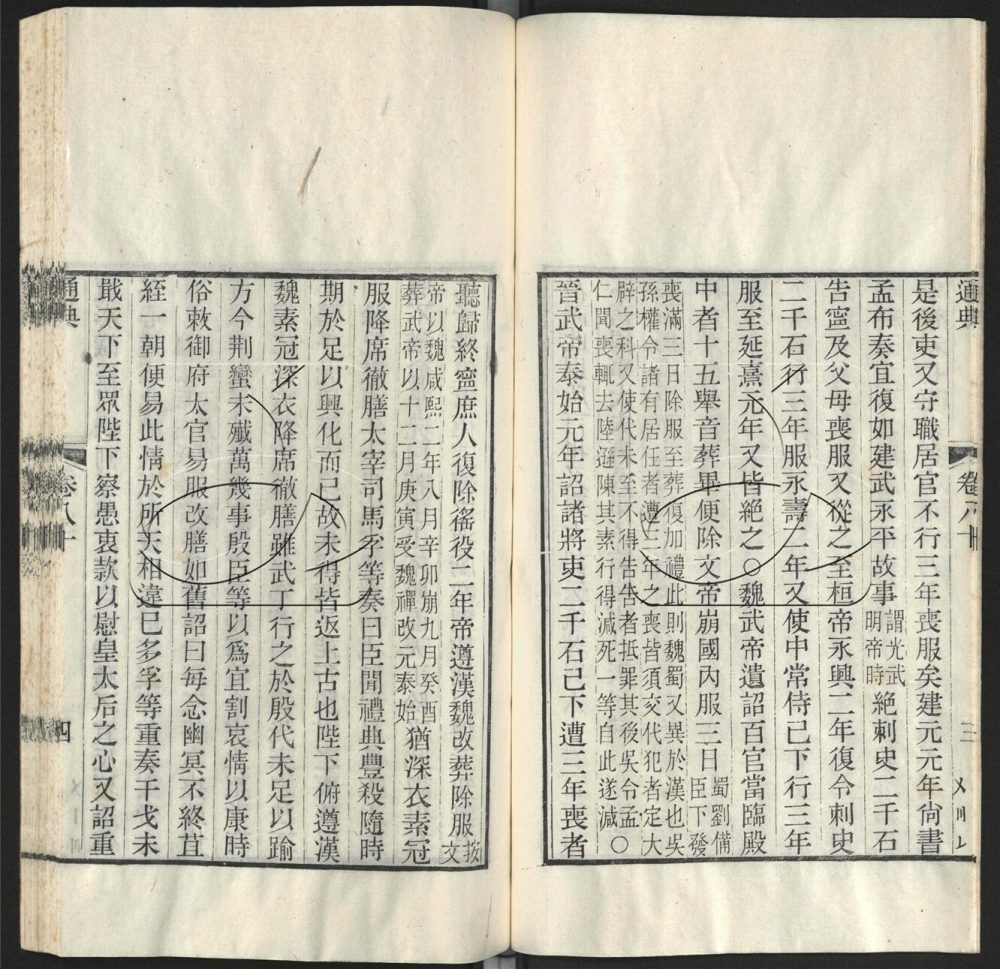 通典
卷八十
三
是後吏又守職居官不行三年喪服矣建元元年尙書
孟布奏宜復如建武永平故事謂光武明帝時絶刺史二千石
告寧及父母喪服又從之至桓帝永興二年復令刺史
二千石行三年服永壽二年又使中常侍已下行三年
服至延熹元年又皆絶之〇魏武帝遺詔百官當臨殿
中者十五舉音葬畢便除文帝崩國內服三日蜀劉備臣下發
喪滿三日除服至葬復加禮此則魏蜀又異於漢也吳
孫權令諸有居任者遭三年之喪皆須交代犯者定大
辟之科又使代未至不得告告者抵罪其後吳令孟
仁聞喪輒去陸遜陳其素行得減死一等自此遂減〇
晉武帝泰始元年詔諸將吏二千石已下遭三年喪者
聽歸終寧庶人復除徭役二年帝遵漢魏改葬除服按文
帝以魏咸熙二年八月辛卯崩九月癸酉
葬武帝以十二月庚寅受魏禪改元泰始猶深衣素冠
服降席徹膳太宰司馬孚等奏曰臣聞禮典豐殺隨時
期於足以興化而已故未得皆返上古也陛下俯遵漢
魏素冠深衣降席徹膳雖武丁行之於殷代未足以踰
方今荆蠻未殲萬幾事殷臣等以爲宜割哀情以康時
俗敕御府太官易服改膳如舊詔曰每念幽冥不終苴
絰一朝便易此情於所天相違已多孚等重奏干戈未
戢天下至眾陛下察愚衷款以慰皇太后之心又詔重
通典
卷八十
四